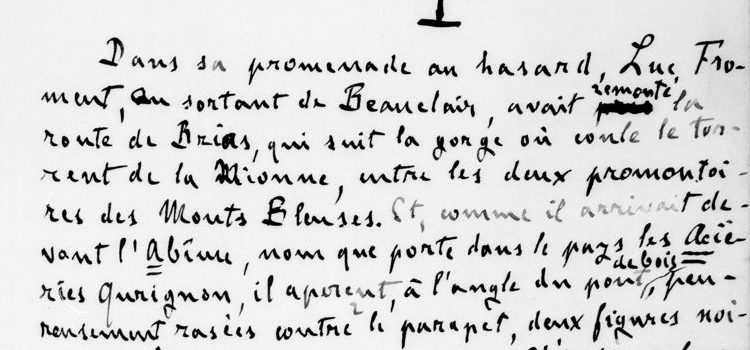 I
Dans sa promenade au hasard, Luc Fro-
ment, en sortant de Beauclair, avait remonté la
route de Brias, qui suit la gorge où coule le tor-
rent de la Mionne, entre les deux promontoi-
res des Monts Bleuses. Et, comme il arrivait de-
vant l'Abîme, nom que porte dans le pays les Acié-
ries Qurignon, il aperçut, à l'angle du pont de bois, peu-
reusement rasées contre le parapet, deux figures noi-